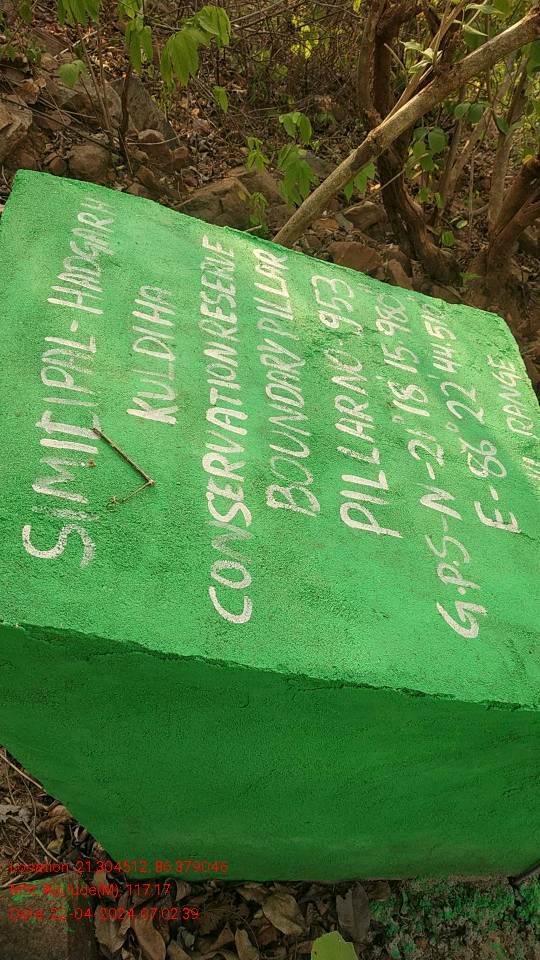 SIMILIPAL-HADGARH
KULDIHA
CONSERVATION RESERVE
BOUNDARY PILLAR
PILLAR NO 953
G.P.S-N-21°18 15.980
E-86°22 44.5
RANGE
Location: 21.304512, 86.379046
MSL Altitude(M): 117.17
Date: 22-04-2024 07:02:39